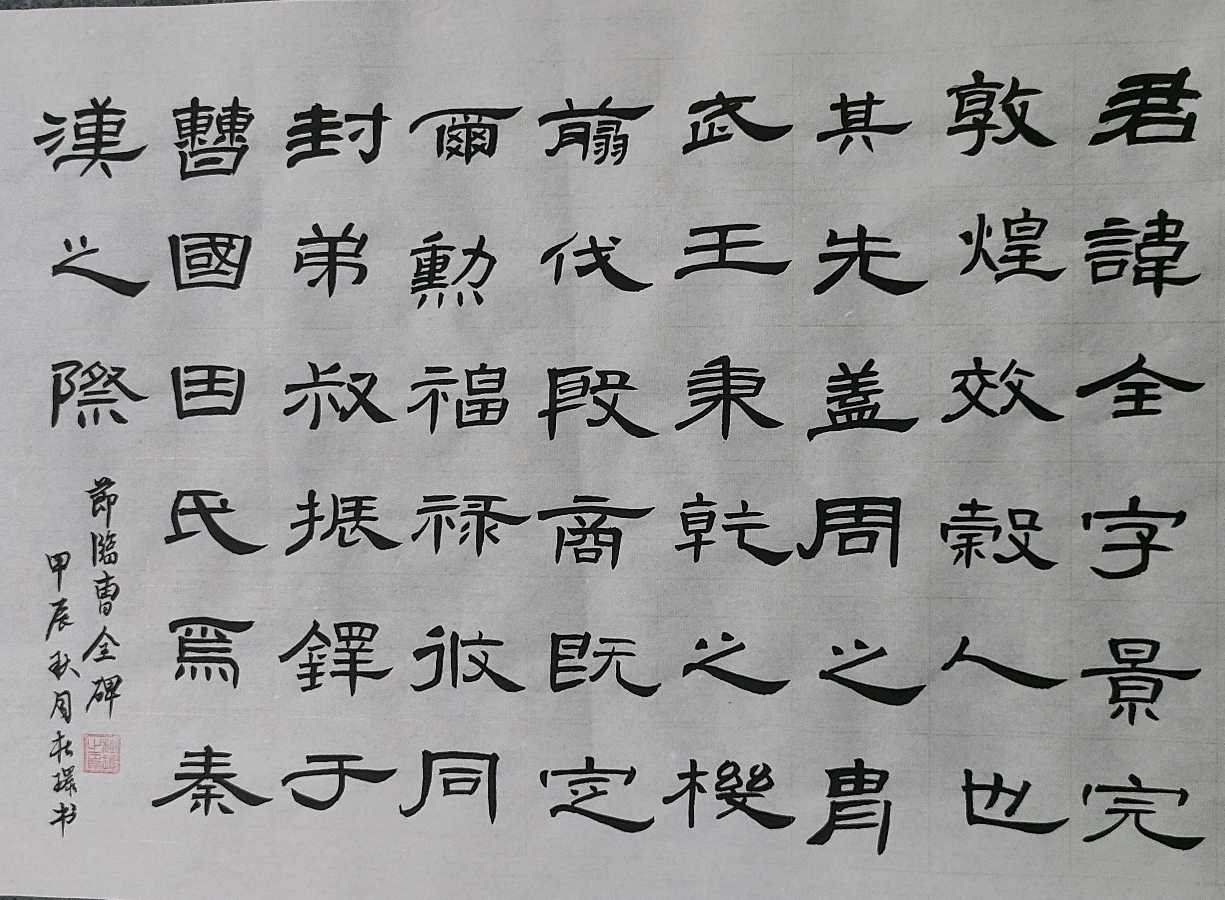 君諱全字景完
敦煌效穀人也
其先盖周之胄
武王秉乾之機
翦伐殷商既定
爾勳福禄同
封弟叔振鐸于
曹國因氏焉秦
漢之際
節臨曹全碑
甲辰秋月杜環书